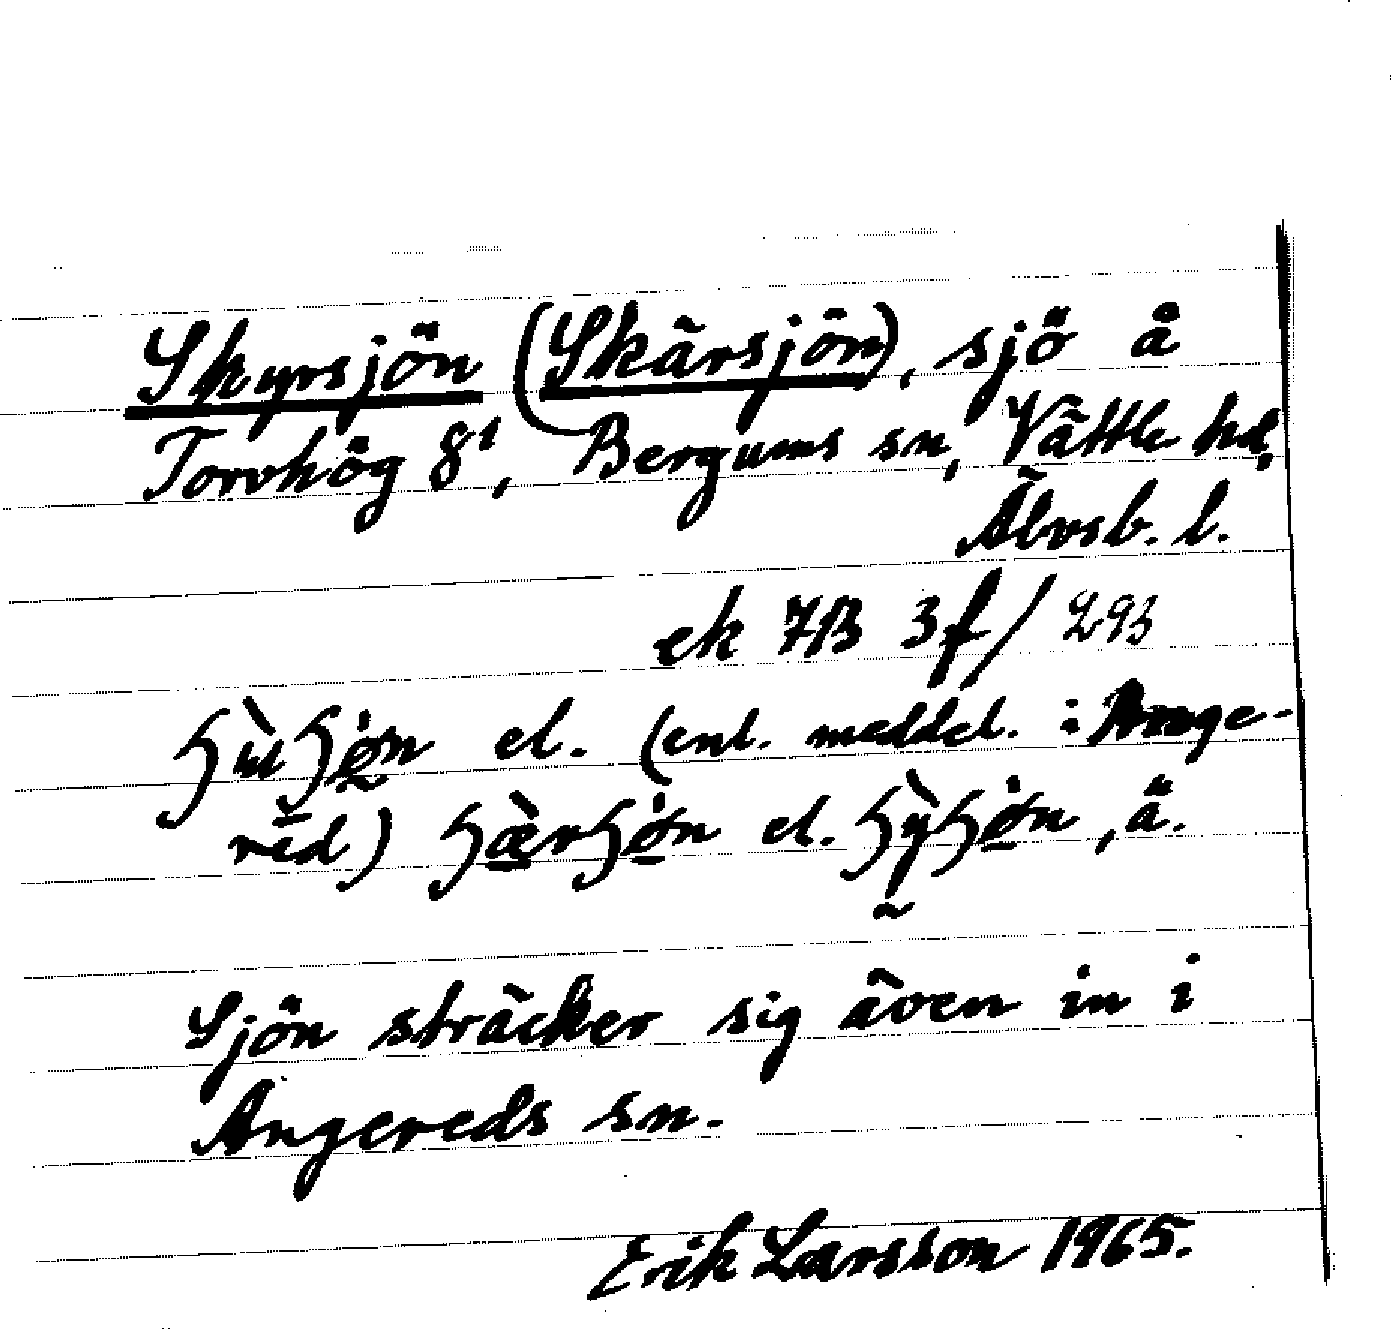 Skyrsjön (Skärsjön), sjö å
Torvhög 8¹, Bergums sn, Vättle hd,
Älvsb. l.
ek 7B 3f/293
el. (enl. meddel. i Ange-
red) el. , ä.
Sjön sträcker sig även in i
Angereds sn.
Erik Larsson 1965.